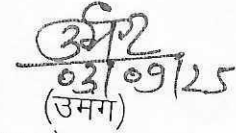 उमंग
03/09/25
(उमग)